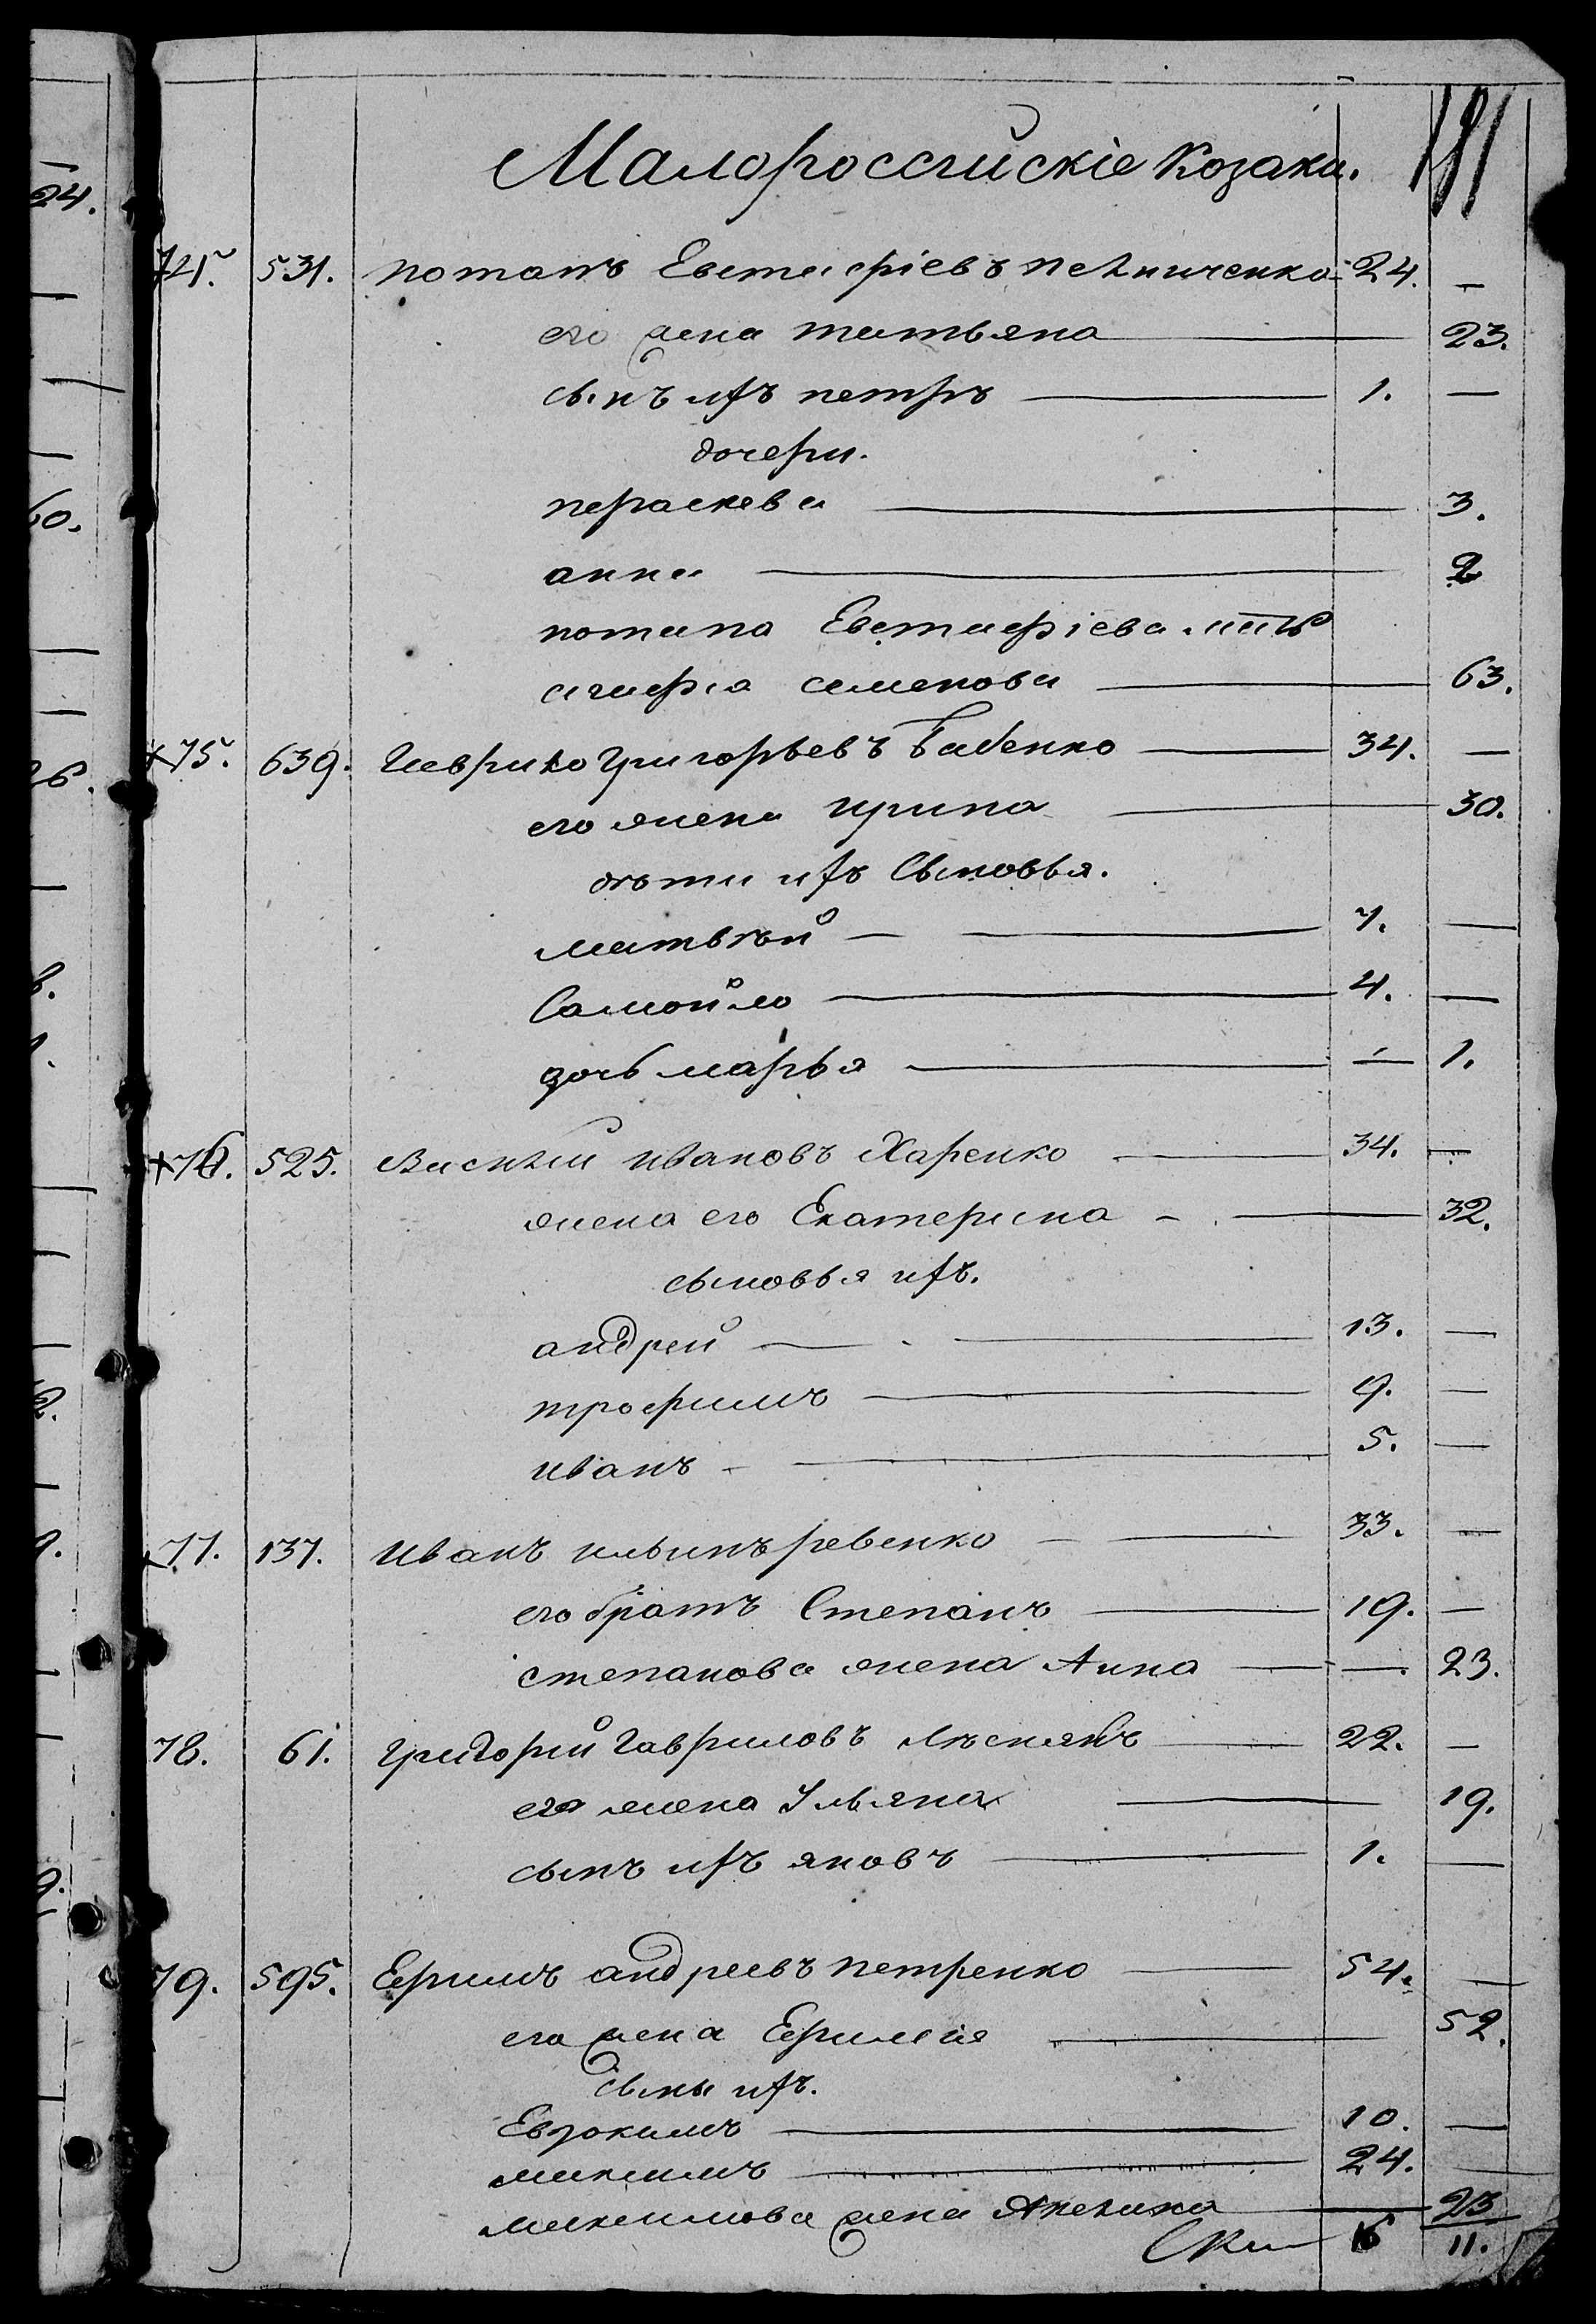 24.
60.
26.
Малороссійскіе Козаки.
191
74. 531. потапъ Евстафіевъ пеличенко 24. —
его жена татьяна 23.
сынъ ихъ петръ 1. —
дочери.
параскева 3.
анна 2
потапа Евстафіева мать
агафія семенова 63.
75. 639. Гаврило Григорьевъ Бабенко 34. —
его жена Ирина 30.
дѣти ихъ Сыновья.
матвѣй 7. —
Самойло 4. —
дочь марья — 1.
76. 525. Василій Ивановъ Харенко 34. —
жена его Екатерина 32.
сыновья ихъ.
андрей 13. —
трофимъ 9. —
иванъ 5. —
77. 137. Иванъ ильинъ ревенко 33. —
его братъ Степанъ 19. —
степанова жена Анна — 23.
78. 61. Григорій Гавриловъ Лѣснякъ 22. —
его жена Ульяна 19.
сынъ ихъ яковъ 1. —
79. 595. Ефимъ андреевъ петренко 54. —
его жена Ефимія 52.
сыны ихъ.
Евдокимъ 10. —
максимъ 24.
максимова жена Акелина 23
16 11.